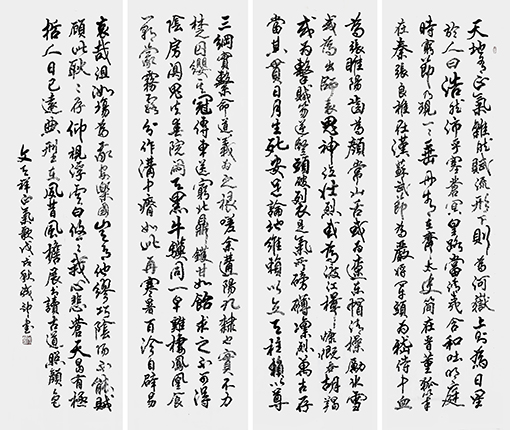 天地有正氣雜然賦流形下則為河嶽上則為日星
於人曰浩然沛乎塞蒼冥皇路當清夷含和吐明庭
時窮節乃見一一垂丹青在齊太史簡在晉董狐筆
在秦張良椎在漢蘇武節為嚴將軍頭為嵇侍中血
為張睢陽齒為顏常山舌或為遼東帽清操厲冰雪
或為出師表鬼神泣壯烈或為渡江楫慷慨吞胡羯
或為擊賊笏逆豎頭破裂是氣所磅礴凜烈萬古存
當其貫日月生死安足論地維賴以立天柱賴以尊
三綱實繫命道義為之根嗟余遘陽九隸也實不力
楚囚纓其冠傳車送窮北鼎鑊甘如飴求之不可得
陰房闃鬼火春院閟天黑牛驥同一皁雞棲鳳凰食
一朝蒙霧露分作溝中瘠如此再寒暑百沴自辟易
哀哉沮洳場為我安樂國豈有他繆巧陰陽不能賊
顧此耿耿存仰視浮雲白悠悠我心悲蒼天曷有極
哲人日已遠典型在夙昔風檐展書讀古道照顏色
文天祥正氣歌戊戌秋書